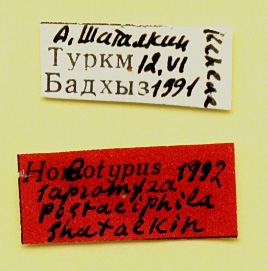 А. Шаталкин
Туркм 12.VI
Бадхыз 1991
Holotypus 1992
Sapromyza
pistaciphila
Shatalkin